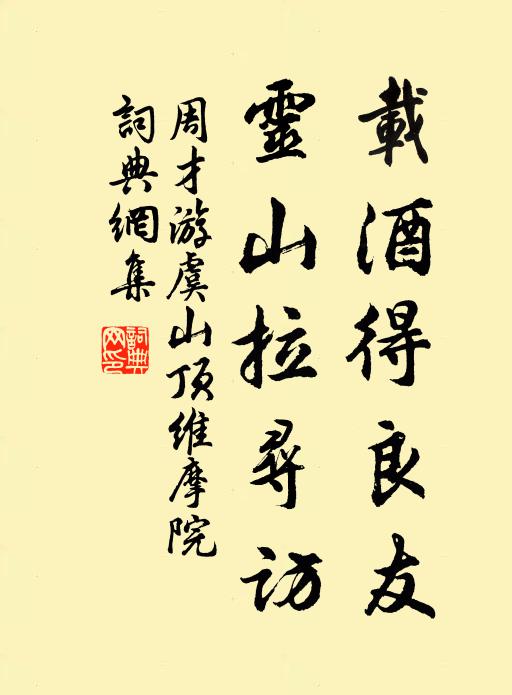 載酒得良友
靈山拉尋訪
周才游虞山頂維摩院
詞典網集
詞典
网印